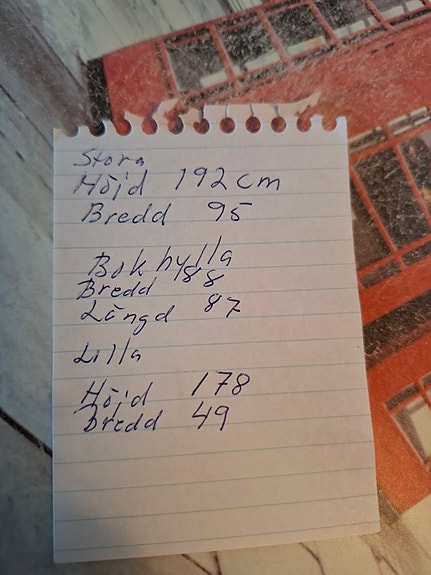 Stora
Höjd 192 cm
Bredd 95
Bok hylla
Bredd 88
Längd 87
Lilla
Höjd 178
Bredd 49